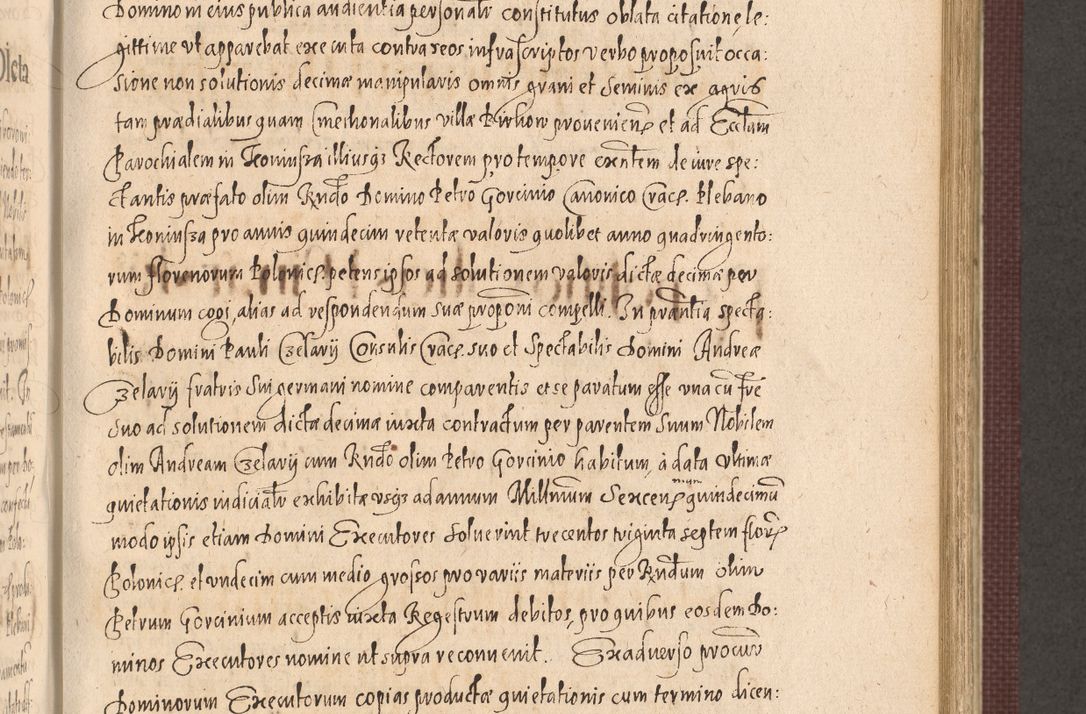 Domino in eius publica audientia personalr constitutus oblata citatione le:
gittime vt apparebat executa contra reos infrascriptos verbo proposuit occa:
sione non solutionis decimæ manipularis omnis grani et seminis ex agris
tam prædialibus quam cmethonalibus villæ Pirkow provenien et ad Ecclam
Parochialem in Koninsza illiusq3 Rectorem pro tempore exntem de iure spe:
ctantis præfato olim Rndo Domino Petro Gorcinio Canonico Crac. Plebano
in Koninsza pro annis quindecim retentæ valoris quolibet anno quadringento:
rum florenorum Polonic. petens ipsos ad solutionem valoris dictæ decimæ per
Dominum cogi, alias ad respondendum suæ proponi compelli. In præntia specta:
bilis Domini Pauli Czelarij Consulis Crac. suo et Spectabilis Domini Andreæ
Czelarij fratris sui germani nomine comparentis et se paratum esse vna cu fre
suo ad solutionem dictæ decimæ iuxta contractum per parentem suum Nobilem
olim Andream Czelarij cum Rndo olim Petro Gorcinio habitum, à data vltimæ
quietationis iudicialr exhibitæ vsq3 ad annum Millmum Sexcen mum quindecimu
modo ipsis etiam Domini Executores soluerint trecentos triginta septem flor
Polonic. et vndecim cum medio grossos pro variis materiis per Rndum olim
Petrum Gorcinium acceptis iuxta Regestrum debitos, pro quibus eosdem Do:
minos Executores nomine ut supra reconvenit. Exadverso procur
Dominorum Executorum copias productæ quietationis cum termino dicen: